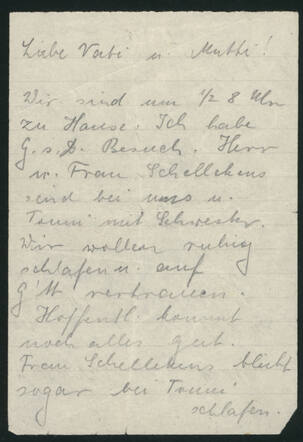 Liebe Vati u. Mutti!
Wir sind um 1/2 8 Uhr
zu Hause. Ich habe
G. s. D. Besuch. Herr
u. Frau Schellekens
sind bei uns u.
Tommi mit Schwester.
Wir wollen ruhig
schlafen u. auf
G'tt vertrauen.
Hoffentl. kommt
noch alles gut.
Frau Schellekens bleibt
sogar bei Tommi
schlafen.